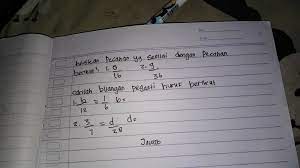 tuliskan Pecahan yg senilai dengan Pecahan
berikut! 1. 8/16 2. 9/36
carilah bilangan Pegganti huruf berikut
1. b/12 = 1/6 b=
2. 3/7 = d/28 d=
Jawab